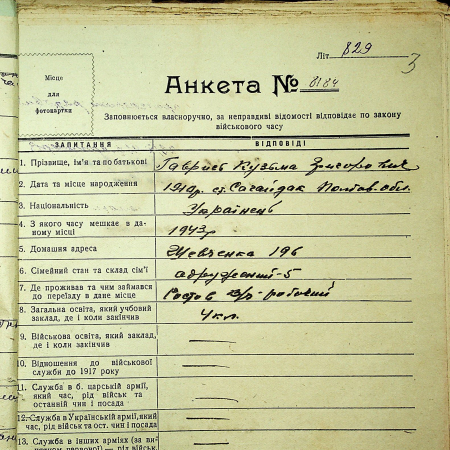 Літ. 829
3
Місце
для
фотокартки
Анкета № 8184
Заповнюється власноручно, за неправдиві відомості відповідає по закону
військового часу
ЗАПИТАННЯ ВІДПОВІДІ
1. Прізвище, ім'я та по батькові Гаврись Кузьма
2. Дата та місце народження 1910р. ст. Сагайдак Полтав. обл.
3. Національність Українець
4. З якого часу мешкає в да-
ному місці 1943р
5. Домашня адреса Шевченка 196
6. Сімейний стан та склад сім'ї одружений-5
7. Де проживав та чим займався
до переїзду в дане місце Ростов робочий
8. Загальна освіта, який учбовий
заклад, де і коли закінчив 4 кл.
9. Військова освіта, який заклад,
де і коли закінчив —
10. Відношення до військової
служби до 1917 року —
11. Служба в б. царській армії,
який час, рід військ та
останній чин і посада —
12. Служба в Українській армії, який
час, рід військ та ост. чин і посада —
13. Служба в інших арміях (за ви-